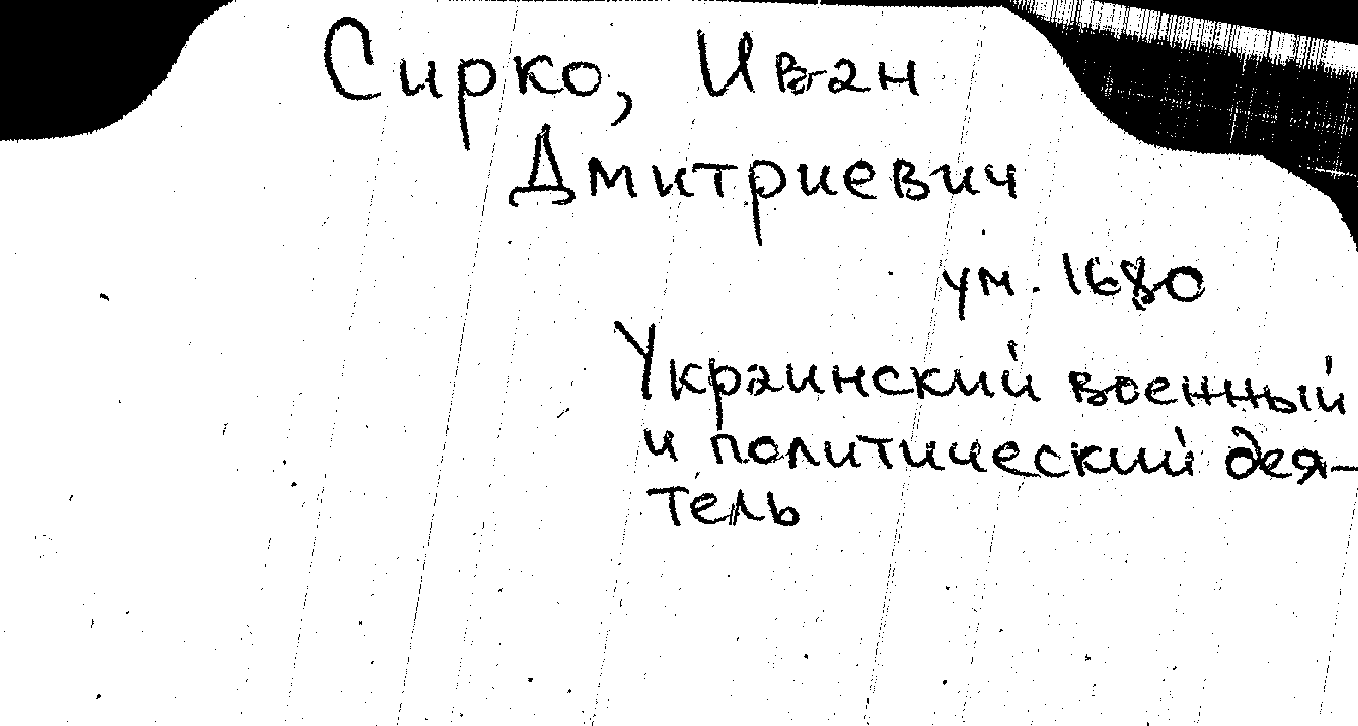 Сирко, Иван
Дмитриевич
ум. 1680
Украинский военный
и политический дея-
тель